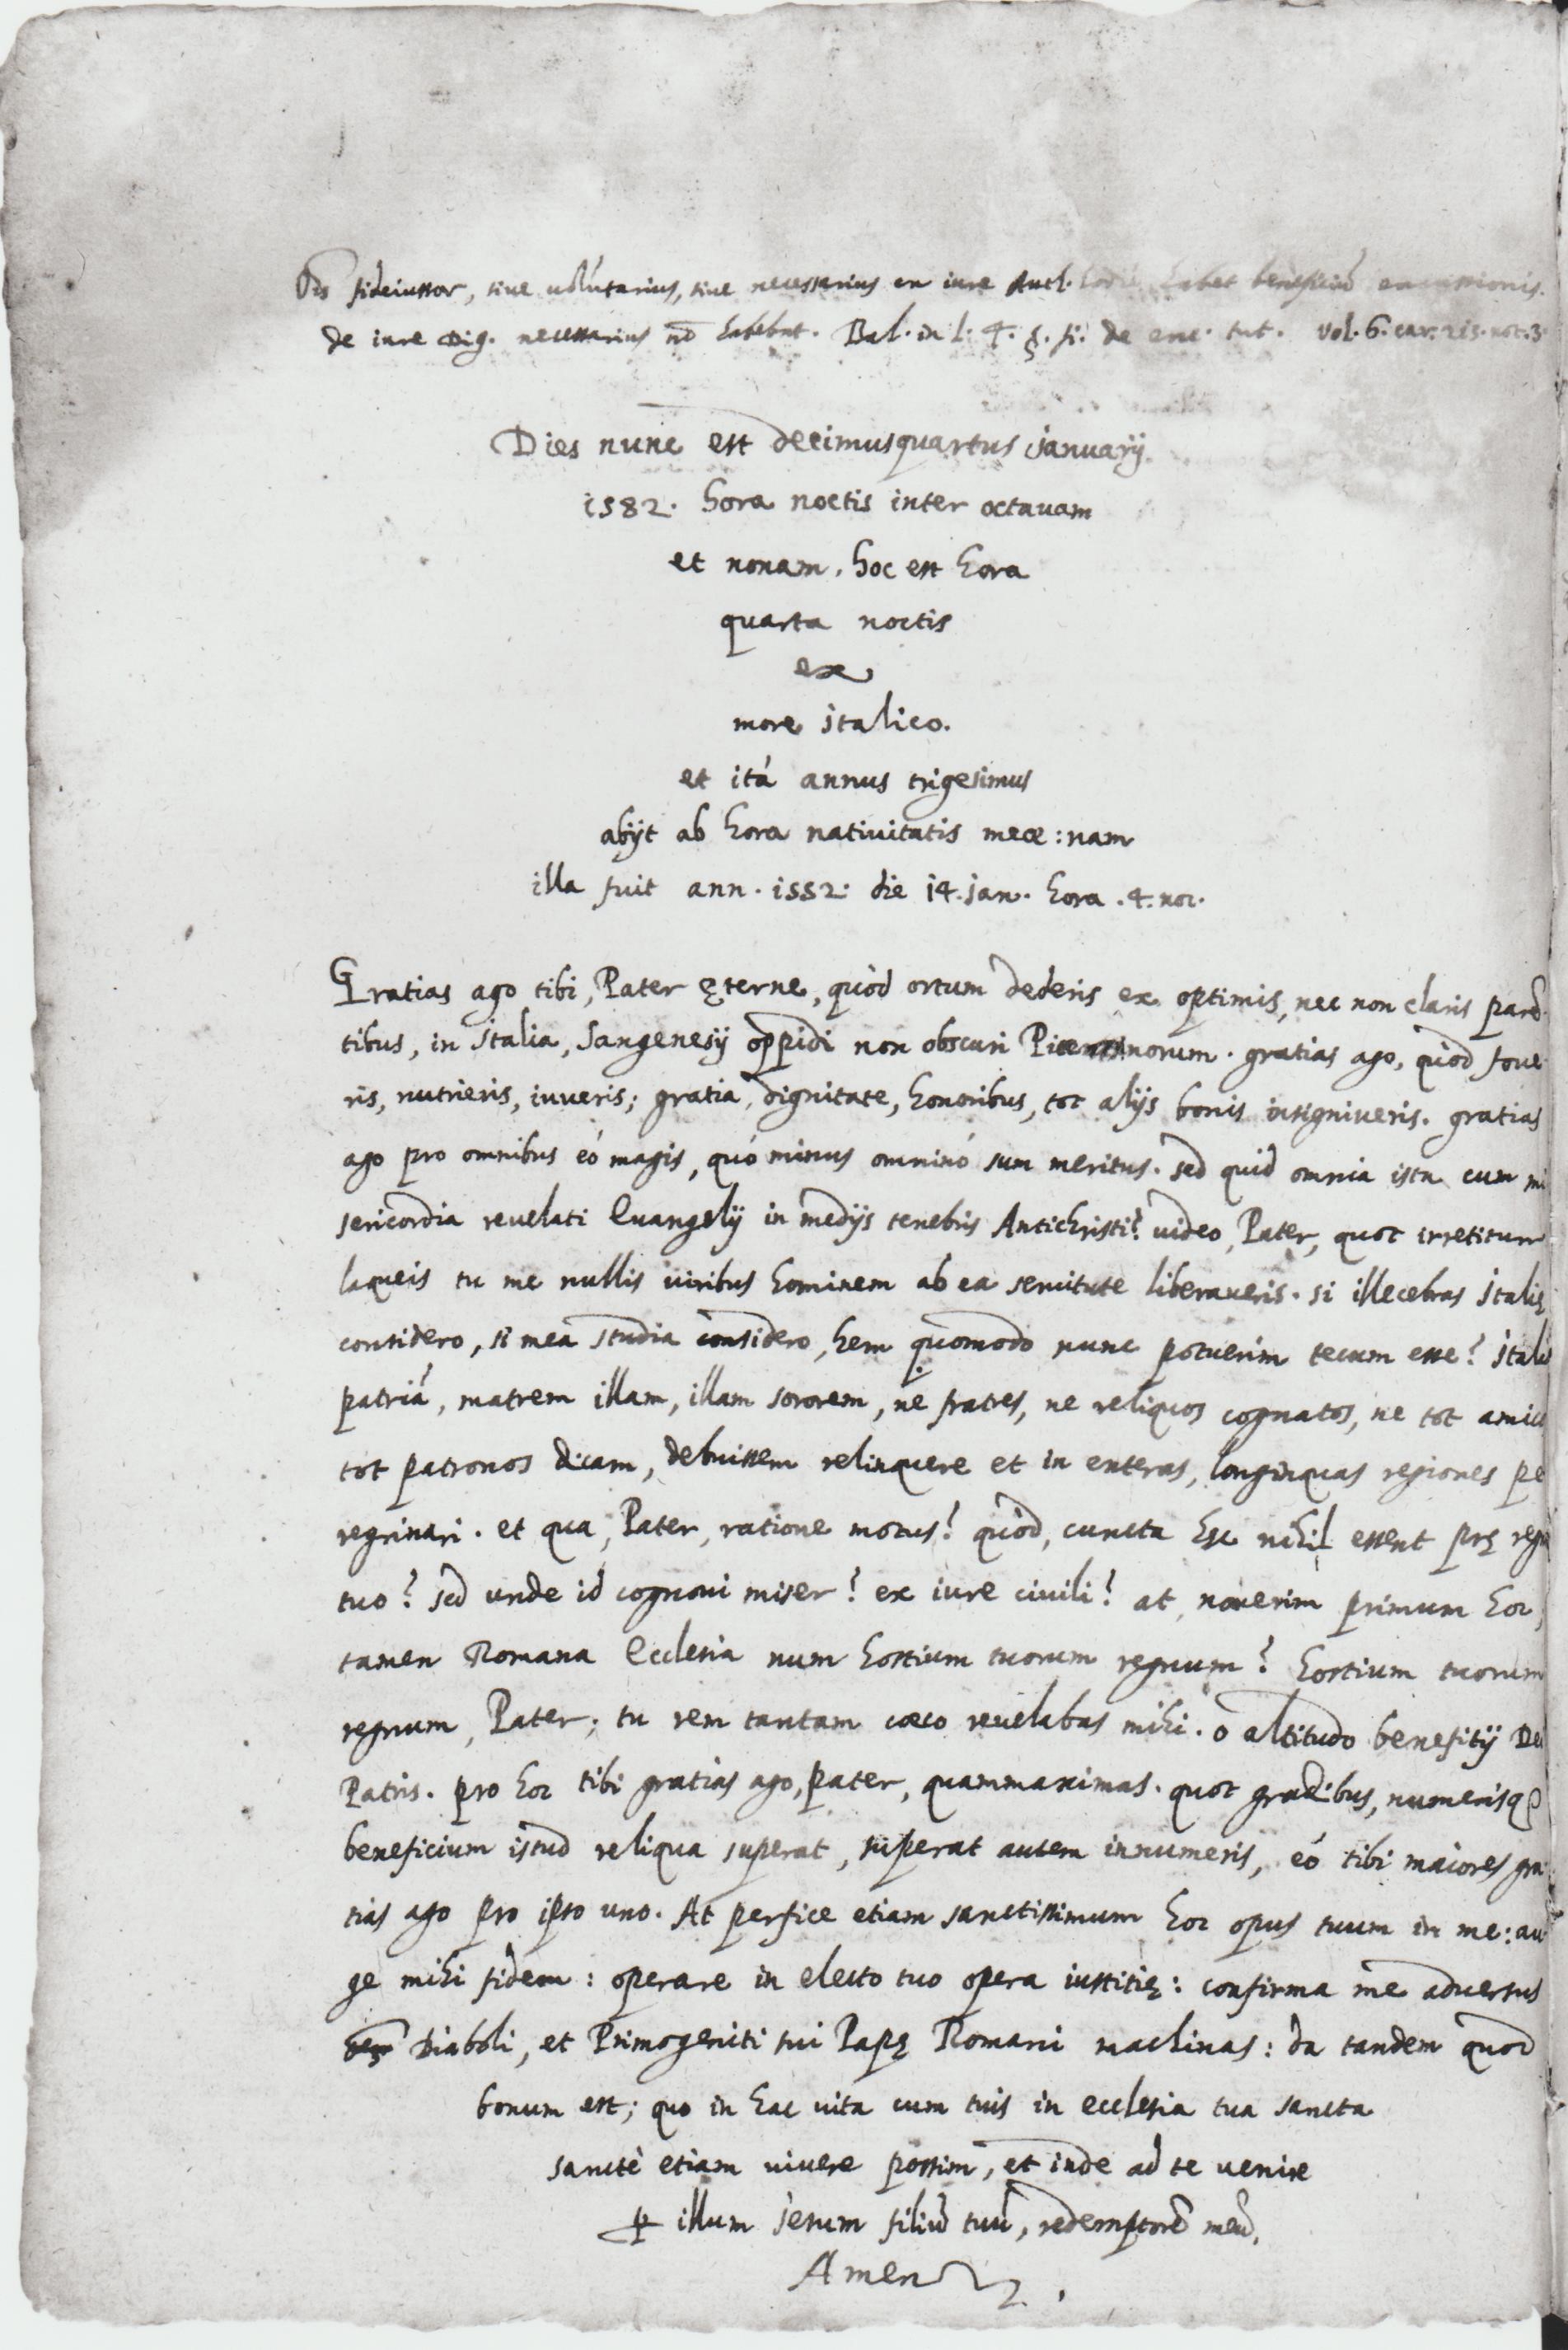 fideiussor, siue uolūtarius, siue necessarius ex iure Auth. hodie habet beneficiū excussionis.
de iure Dig. necessarius nō habebat. Bal. in l. 4. §. fi. de exc. tut. vol. 6. car. 215. not. 3.
Dies nunc est decimusquartus januarij
1582. hora noctis inter octauam
et nonam, hoc est hora
quarta noctis
ex
more italico.
et itá annus trigesimus
abijt ab hora natiuitatis meæ: nam
illa fuit ann. 1552. die 14. jan. hora .4. noc.
Gratias ago tibi, Pater ęterne, quòd ortum dederis ex optimis, nec non claris parē
tibus, in Italia, Sangenesij oppidi non obscuri norum. gratias ago, quòd foue
ris, nutrieris, iuueris; gratia, dignitate, honoribus, tot alijs bonis insigniueris. gratias
ago pro omnibus eó magis, quó minus omninó sum meritus. sed quid omnia ista cum mi
sericordia reuelati Euangelij in medijs tenebris Antichristi? uideo, Pater, quot irretitum
laqueis tu me nullis uiribus hominem ab ea seruitute liberaueris. si illecebras Italię
considero, si mea studia considero, hem quomodo nunc potuerim tecum esse? Itali
patriā, matrem illam, illam sororem, ne fratres, ne reliquos cognatos, ne tot amico
tot patronos dicam, debuissem relinquere et in exteras, longinquas regiones pe
regrinari. et qua, Pater, ratione motus? quòd, cuncta hęc nihil essent prę regn
tuo? sed unde id cognoui miser? ex iure ciuili? at nouerim primum hoc,
tamen Romana Ecclesia num hostium tuorum regnum? hostium tuorum
regnum, Pater; tu rem tantam cæco reuelabas mihi. o altitudo benefitij Dei
Patris. pro hoc tibi gratias ago, pater, quammaximas. quot gradibus, numerisq3
beneficium istud reliqua superat, superat autem innumeris, eó tibi maiores gra
tias ago pro ipso uno. At perfice etiam sanctissimum hoc opus tuum in me: au
ge mihi fidem: operare in electo tuo opera iustitię: confirma me aduersus
Diaboli, et Primogeniti tui Papę Romani machinas: da tandem quod
bonum est; quo in hac uita cum tuis in ecclesia tua sancta
sanctè etiam uiuere possim, et inde ad te uenire
ꝑ illum Jesum filiū tuū, redemptorē meū,
Amen.